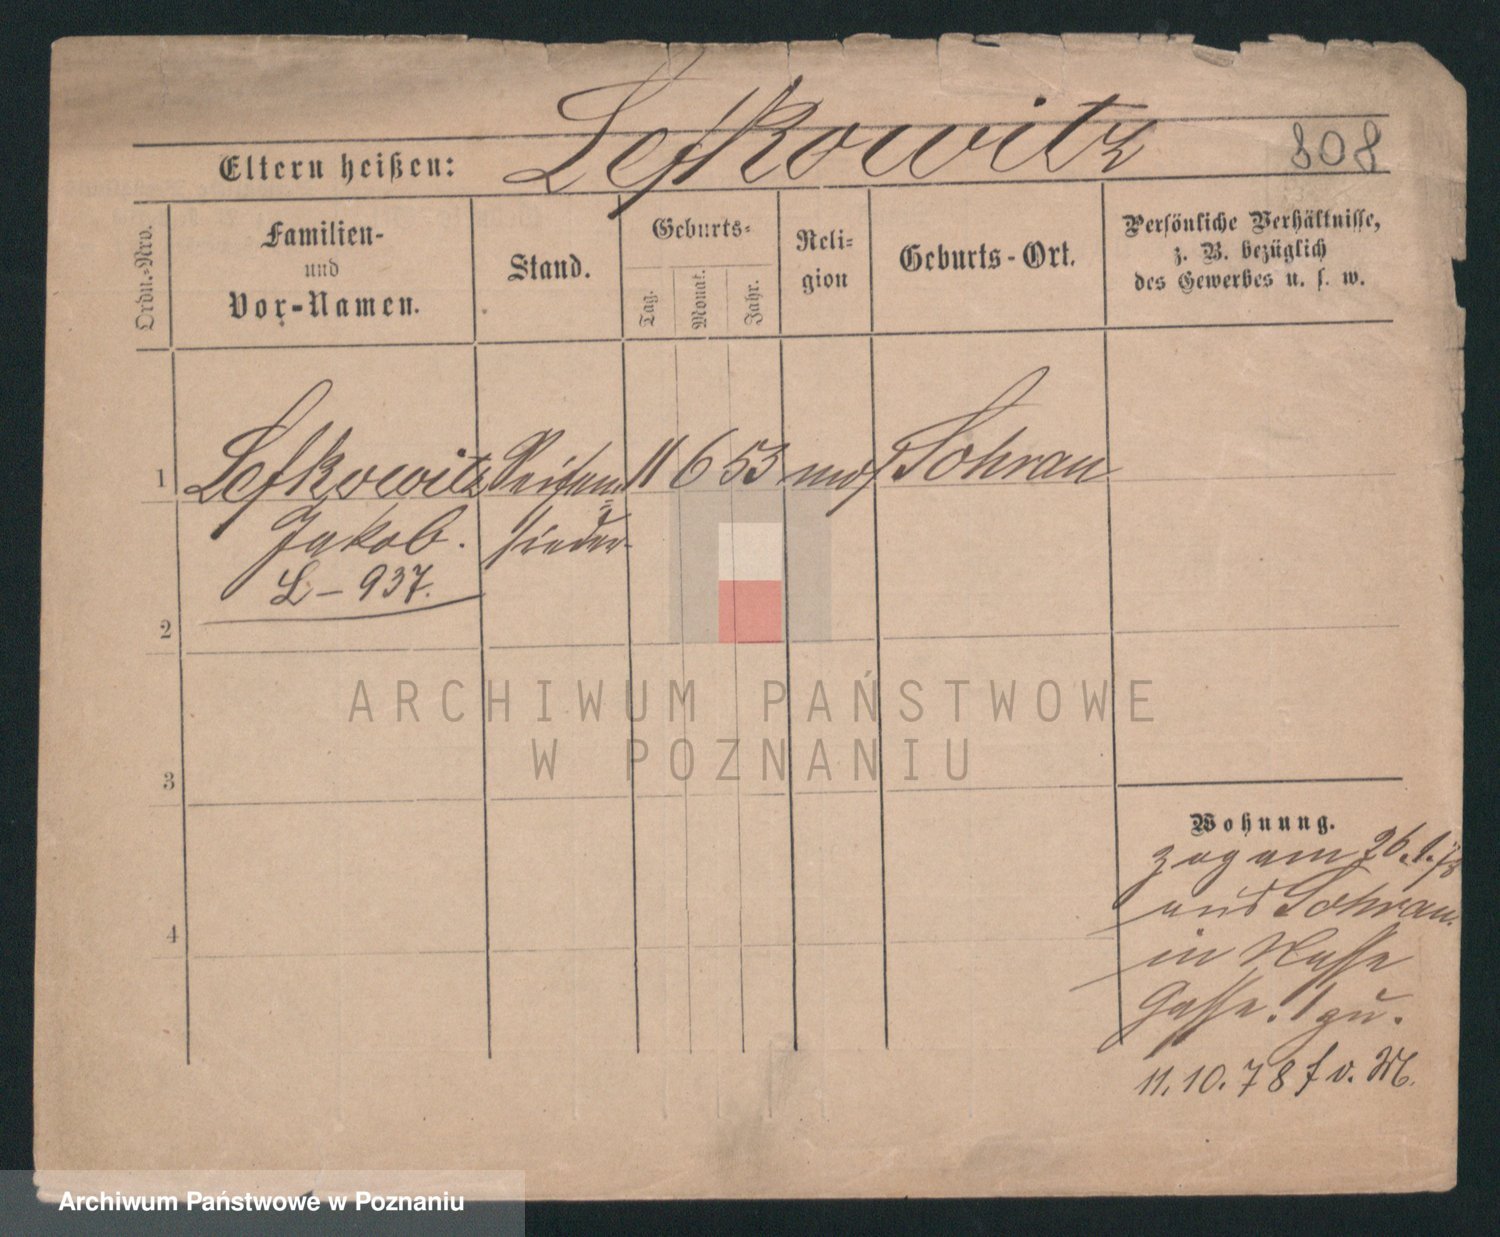 Lefkowitz
808
Eltern heißen:
Ordn.-Nro.
Familien-
und
Vor-Namen.
Stand.
Geburts-
Tag.
Monat.
Jahr.
Reli-
gion
Geburts-Ort.
Persönliche Verhältnisse,
z. B. bezüglich
des Gewerbes u. s. w.
1 Lefkowitz Seifen= 11 6 53 mos Sohrau
Jakob. sieder
L – 937.
2
3
4
Wohnung.
zog am 26.1.78
aus Sohrau.
in Nasse
Gasse. 1 zu.
11.10.78 f v. M.
ARCHIWUM PAŃSTWOWE
W POZNANIU
Archiwum Państwowe w Poznaniu